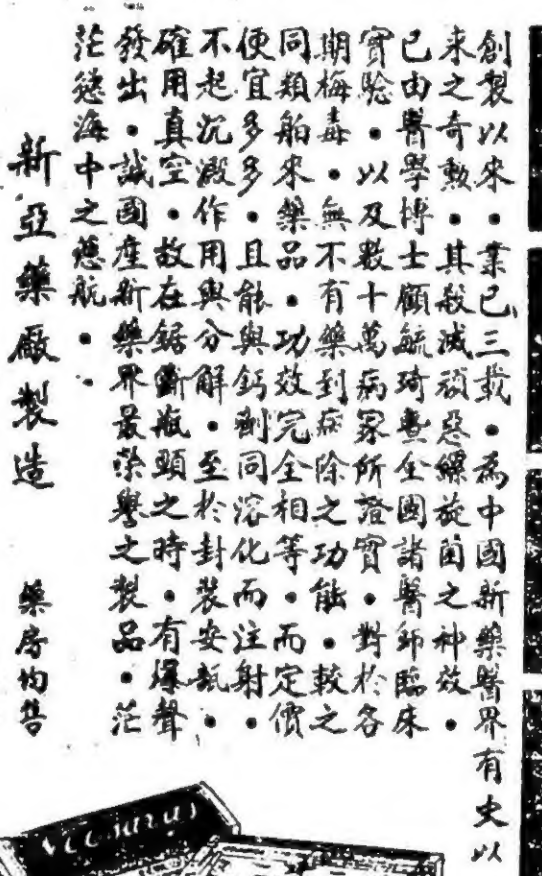 創製以來。業已三載。為中國新藥醫界有史以
來之奇勳。其殺滅頑惡螺旋菌之神效。
已由醫學博士顧毓琦曁全國諸醫師臨床
實驗。以及數十萬病家所證實。對於各
期梅毒。無不有藥到病除之功能。較之
同類舶來藥品。功效完全相等。而定價
便宜多多。且能與鈣劑同溶化而注射。
不起沉澱作用與分解。至於封裝安瓿。
確用真空。故在鋸斷瓶頸之時。有爆聲
發出。誠國產新藥界最榮譽之製品。茫
茫慾海中之慈航。
新亞藥廠製造
藥房均售